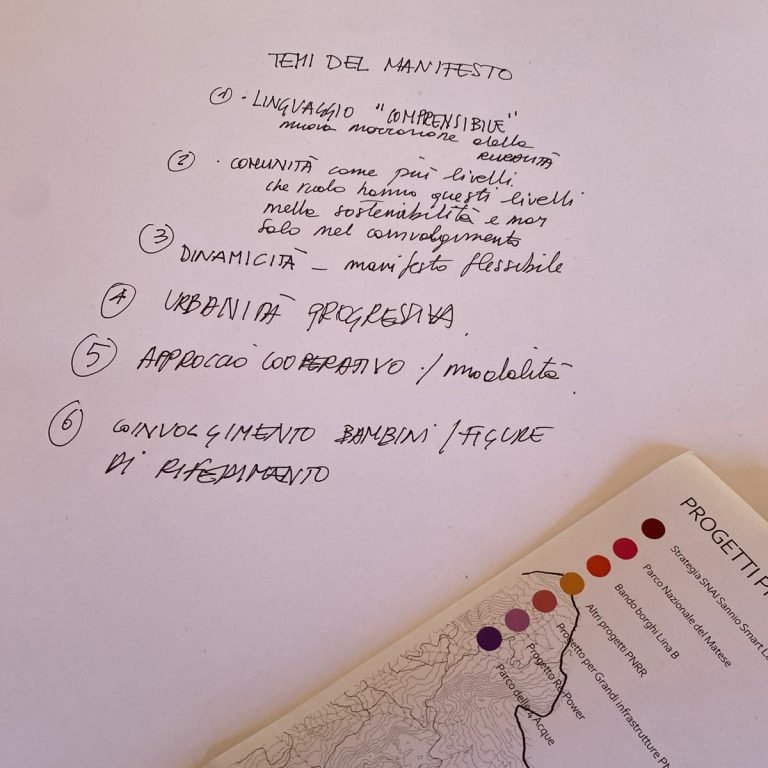 TEMI DEL MANIFESTO
① · LINGUAGGIO "COMPRENSIBILE"
nuova narrazione della
RURALITÀ
② · COMUNITÀ come più livelli.
che ruolo hanno questi livelli
nella sostenibilità e non
solo nel coinvolgimento
③ DINAMICITÀ – manifesto flessibile
④ URBANITÀ PROGRESSIVA
⑤ APPROCCIO COOPERATIVO ·/ modalità.
⑥ COINVOLGIMENTO BAMBINI / FIGURE
DI RIFERIMENTO
PROGETTI
Strategia SNAI Sannio Smart
Parco Nazionale del Matese
Bando borghi Lina B
Altri progetti PNRR
Progetto per Grandi infrastrutture
Progetto Re-Power
Parco delle 4 Acque